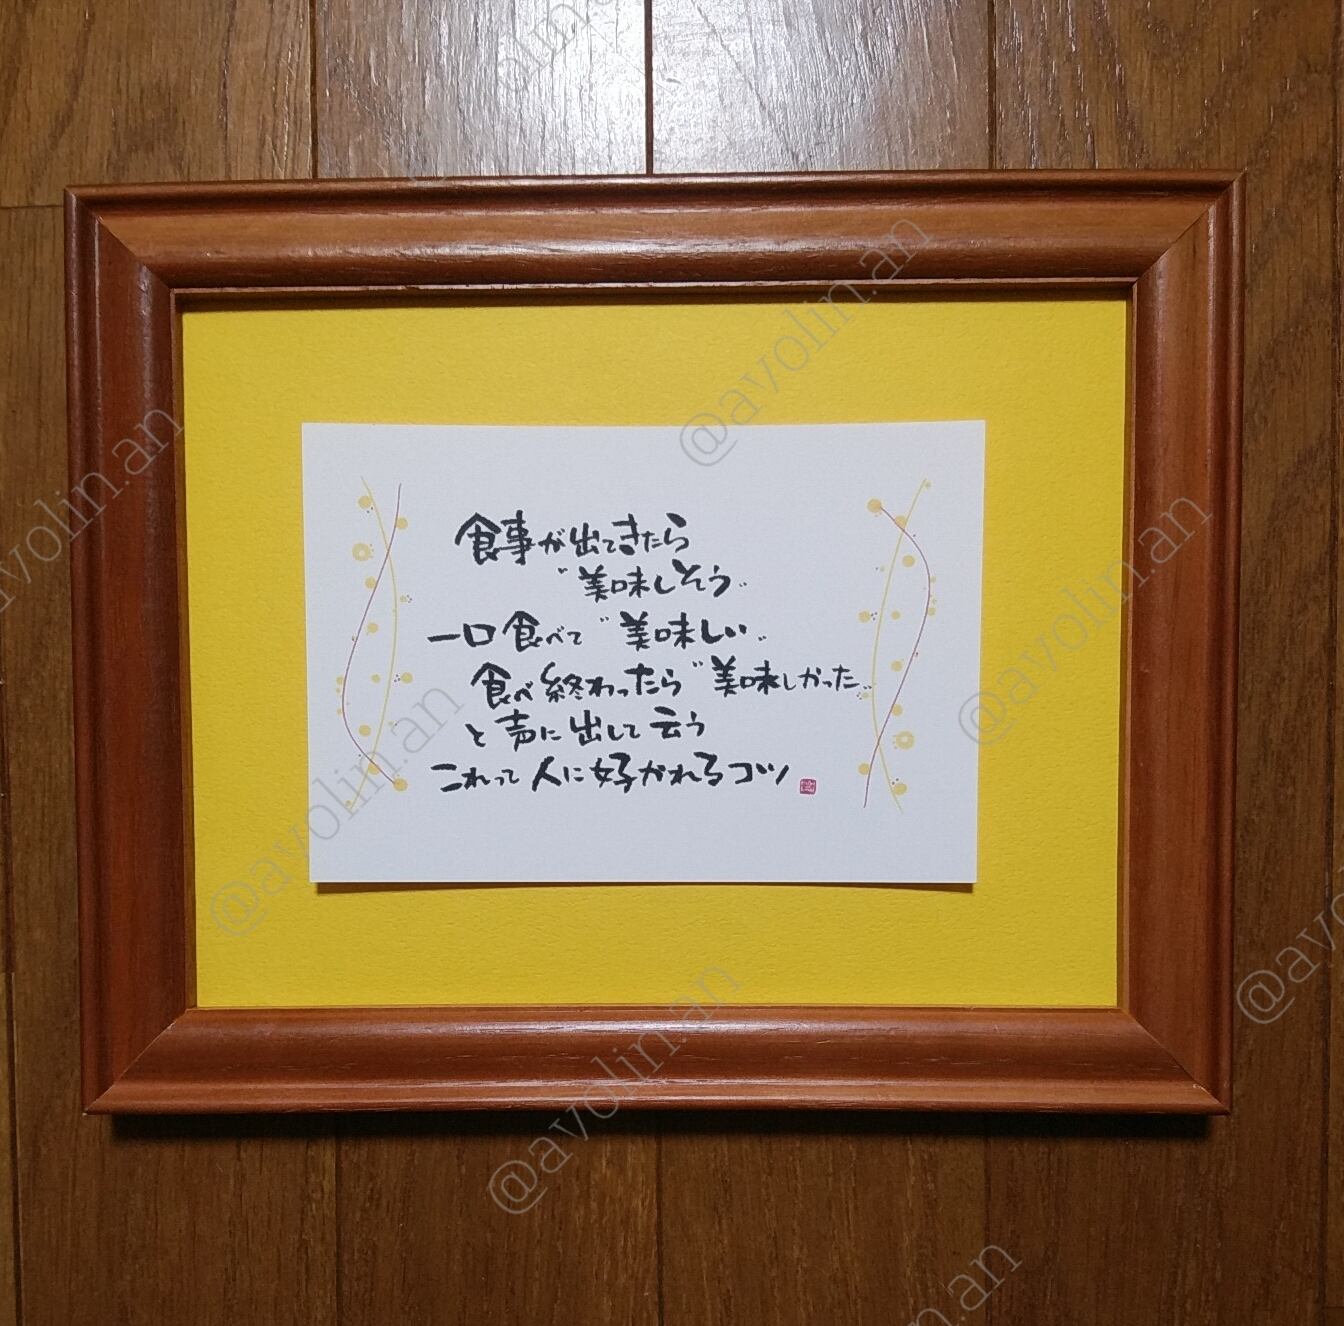 食事が出てきたら
〝美味しそう〟
一口食べて〝美味しい〟
食べ終わったら〝美味しかった〟
と声に出して云う
これって人に好かれるコツ
@avolin.an
@avolin.an
@avolin.an
@avolin.an
@avolin.an